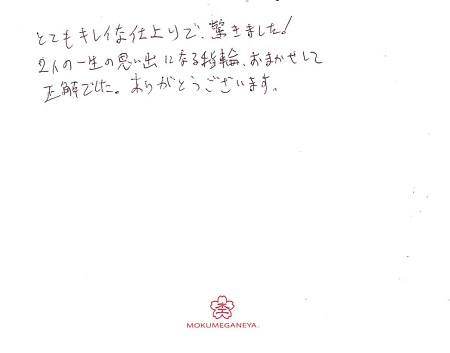 とてもキレイな仕上りで、驚きました!
2人の一生の思い出になる指輪、おまかせして
正解でした。ありがとうございます。
杢
MOKUMEGANEYA.